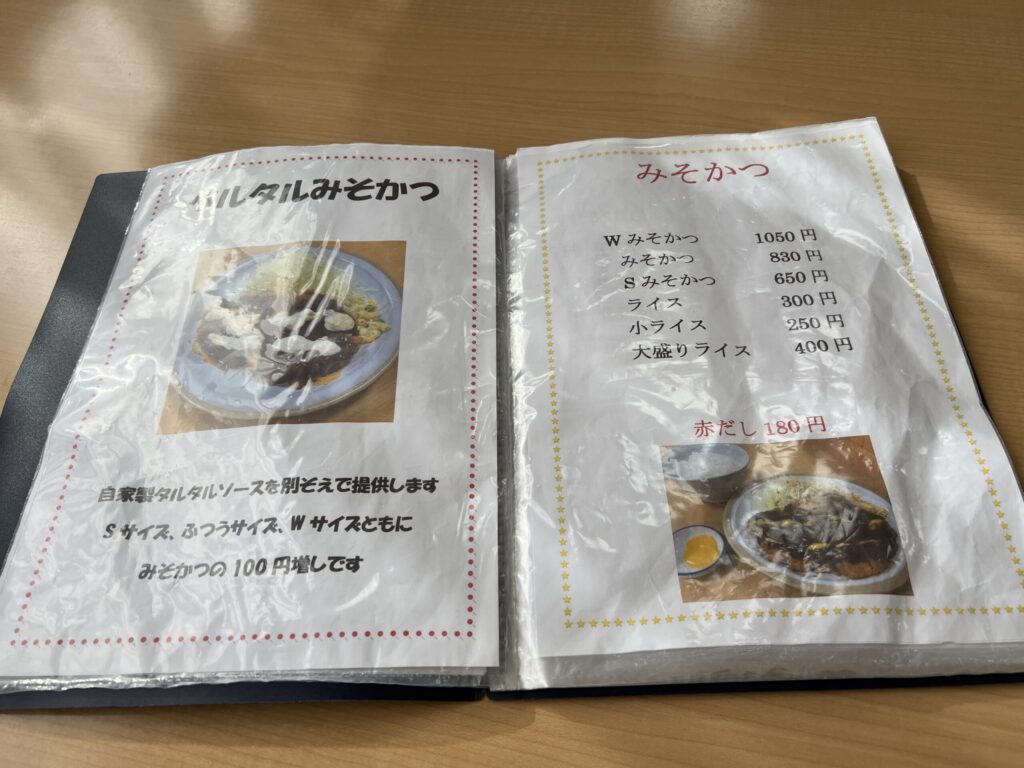 タルタルみそかつ
自家製タルタルソースを別ぞえで提供します
Sサイズ、ふつうサイズ、Wサイズともに
みそかつの100円増しです
みそかつ
Wみそかつ 1050円
みそかつ 830円
Sみそかつ 650円
ライス 300円
小ライス 250円
大盛りライス 400円
赤だし180円